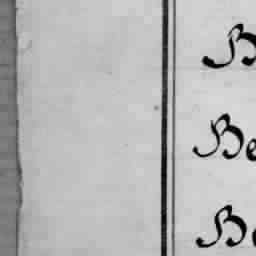 B
Be
Be